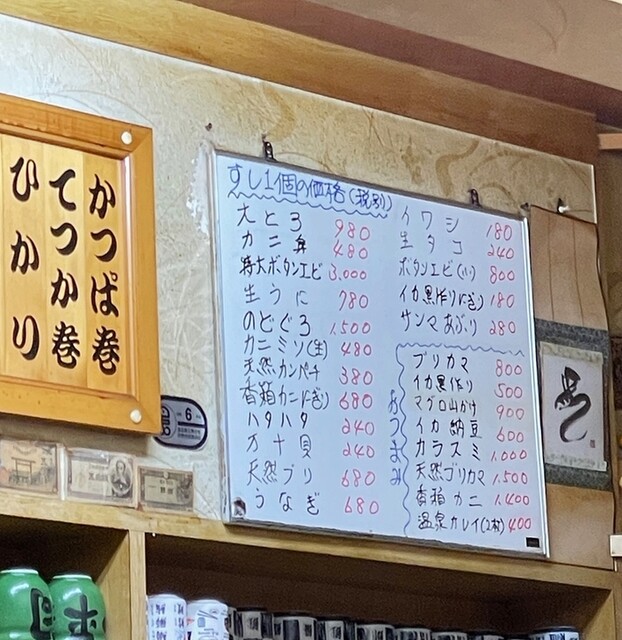 かっぱ巻
てつか巻
ひかり
すし1個の価格(税別)
大とろ 980
カニ身 480
特大ボタンエビ 3,000
生うに 780
のどぐろ 1,500
カニミソ(生) 480
天然カンパチ 380
香箱カニにぎり 680
ハタハタ 240
万十貝 240
天然ブリ 680
うなぎ 680
イワシ 180
生タコ 240
ボタンエビ(小) 800
イカ黒作りにぎり 180
サンマあぶり 280
おつまみ
ブリカマ 800
イカ黒作り 500
マグロ山かけ 900
イカ納豆 600
カラスミ 1,000
天然ブリカマ 1,500
香箱カニ 1,400
温泉カレイ(2枚) 400
6